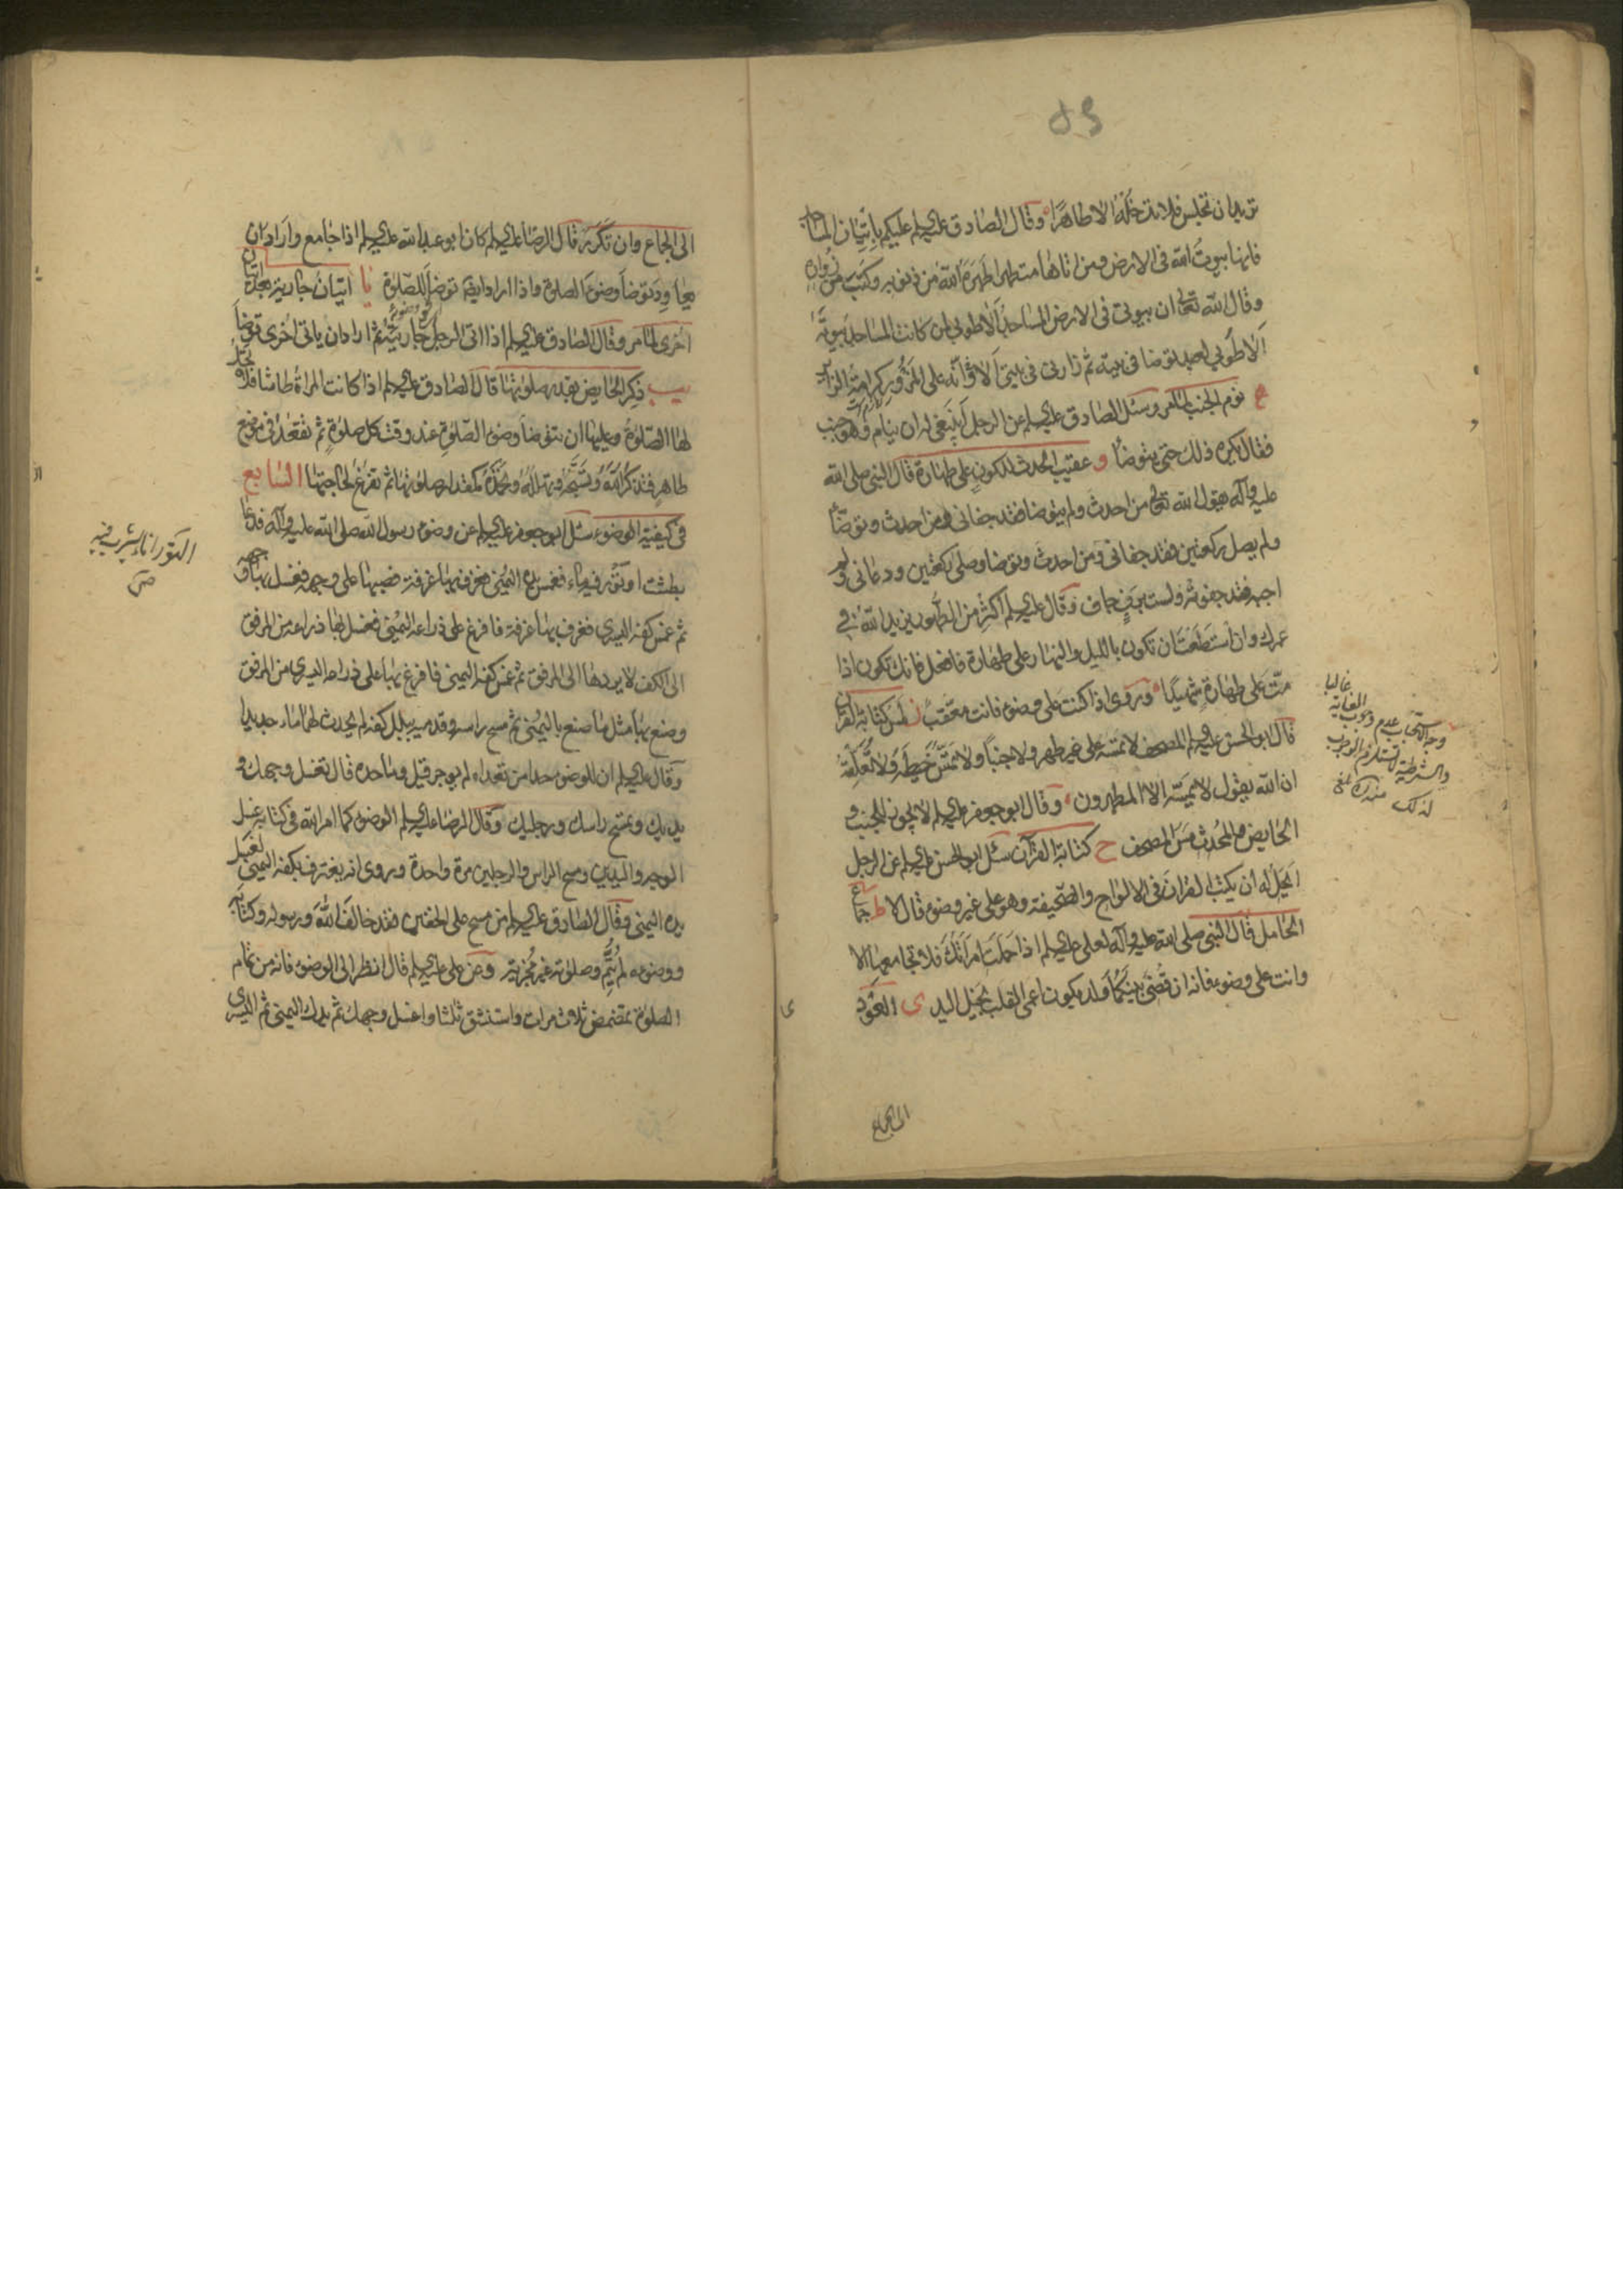 ٥٩
تريد ان تجلس فلا تدخله الا طاهرًا وقال الصادق عليه السلم عليكم باتيان المساجد
فانها بيوت الله فى الارض ومن اتاها متطهرا طهره الله من ذنوبه وكتب من زواره
وقال الله تعالى ان بيوتى فى الارض المساجد الا طوبى لمن كانت المساجد بيوته
الا طوبى لعبد توضا فى بيته ثم زارنى فى بيتى الا وانه على المزور كرامة الزائر
نوم الجنب لما مر وسئل الصادق عليه السلم عن الرجل اينبغى له ان ينام وهو جنب
فقال يكره ذلك حتى يتوضأ و عقيب الحدث للكون على طهارة قال النبى صلى الله
عليه وآله يقول الله تعالى من احدث ولم يتوضا فقد جفانى ومن احدث وتوضأ
ولم يصل ركعتين فقد جفانى ومن احدث وتوضا وصلى ركعتين ودعانى ولم
اجبه فقد جفوته ولست برب جاف وقال عليه السلم اكثر من الطهور يزيد الله فى
عمرك وان استطعت ان تكون بالليل والنهار على طهارة فافعل فانك تكون اذا
مت على طهارة شهيدًا وروى اذا كنت على وضوء فانت معقب ز لمس كتابة القران
قال ابو الحسن عليه السلم المصحف لا تمسه على غير طهر ولا جنبًا ولا تمس خيطه ولا تعلقه
ان الله يقول لا يمسه الا المطهرون وقال ابو جعفر عليه السلم لا يجوز للجنب و
الحايض والمحدث مس المصحف ح كتابة القرآن سئل ابو الحسن عليه السلم عن الرجل
ايحل له ان يكتب القران فى الالواح والصحيفة وهو على غير وضوء قال لا ط جماع
الحامل قال النبى صلى الله عليه وآله لعلى عليه السلم اذا حملت امراتك فلا تجامعها الا
وانت على وضوء فانه ان قضى بينكما ولد يكون اعمى القلب بخيل اليد ى العود
الى الجماع
غالبا
وجه الاستحباب عدم وجوب الغاية
والشرطية لاستلزم الوجوب
لذلك
الى الجماع وان تكرر قال الرضا عليه السلم كان ابو عبد الله عليه السلم اذا جامع واراد ان
يعاود توضأ وضوء الصلوة واذا اراد ايضا توضأ للصلوة يا اتيان جارية بعد اتيان
اخرى لما مر وقال الصادق عليه السلم اذا اتى الرجل جاريته ثم اراد ان ياتى اخرى توضأ
يب ذكر الحايض بقدر صلوتها قال الصادق عليه السلم اذا كانت المراة طامثا فلا تحل
لها الصلوة وعليها ان تتوضأ وضوء الصلوة عند وقت كل صلوة ثم تقعد فى موضع
طاهر فتذكر الله وتسبحه وتهلله وتحمده كمقدار صلوتها ثم تفرغ لحاجتها السابع
فى كيفية الوضوء سئل ابو جعفر عليه السلم عن وضوء رسول الله صلى الله عليه وآله فدعا
بطشت او تور فيه ماء فغمس يده اليمنى فغرف بها غرفة فصبها على وجهه فغسل بها وجهه
ثم غمس كفه اليسرى فغرف بها غرفة فافرغ على ذراعه اليمنى فغسل بها ذراعه من المرفق
الى الكف لا يردها الى المرفق ثم غمس كفه اليمنى فافرغ بها على ذراعه اليسرى من المرفق
وصنع بها مثل ما صنع باليمنى ثم مسح راسه وقدميه ببلل كفه لم يحدث لهما ماء جديدا
وقال عليه السلم ان للوضوء حدا من تعداه لم يوجر قيل وما حده قال تغسل وجهك و
يديك وتمسح راسك ورجليك وقال الرضا عليه السلم الوضوء كما امر الله فى كتابه غسل
الوجه واليدين ومسح الراس والرجلين مرة واحدة وروى انه يغترف بكفه اليمنى لغسل
يده اليمنى وقال الصادق عليه السلم من مسح على الخفين فقد خالف الله ورسوله وكتابه
ووضوءه لم يتم وصلوته غير مجزية وعن على عليه السلم قال انظر الى الوضوء فانه من تمام
الصلوة تمضمض ثلاث مرات واستنشق ثلثا واغسل وجهك ثم يدك اليمنى ثم اليسرى
التور اناء يشرب فيه
ص